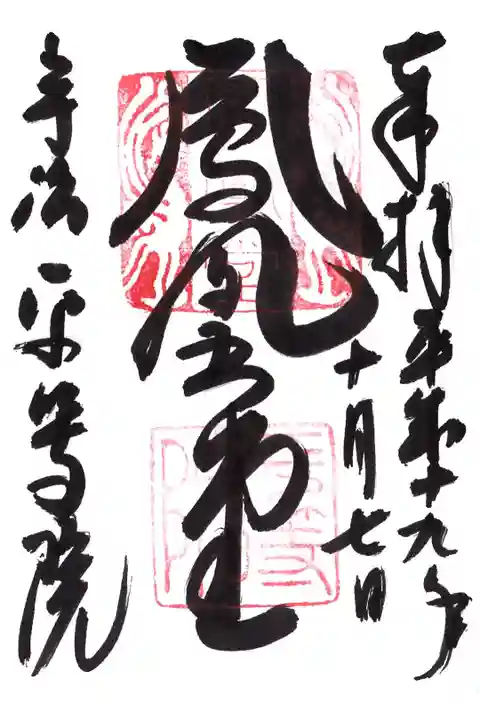 奉拝 平成十九年
十月七日
鳳凰堂
宇治 平等院